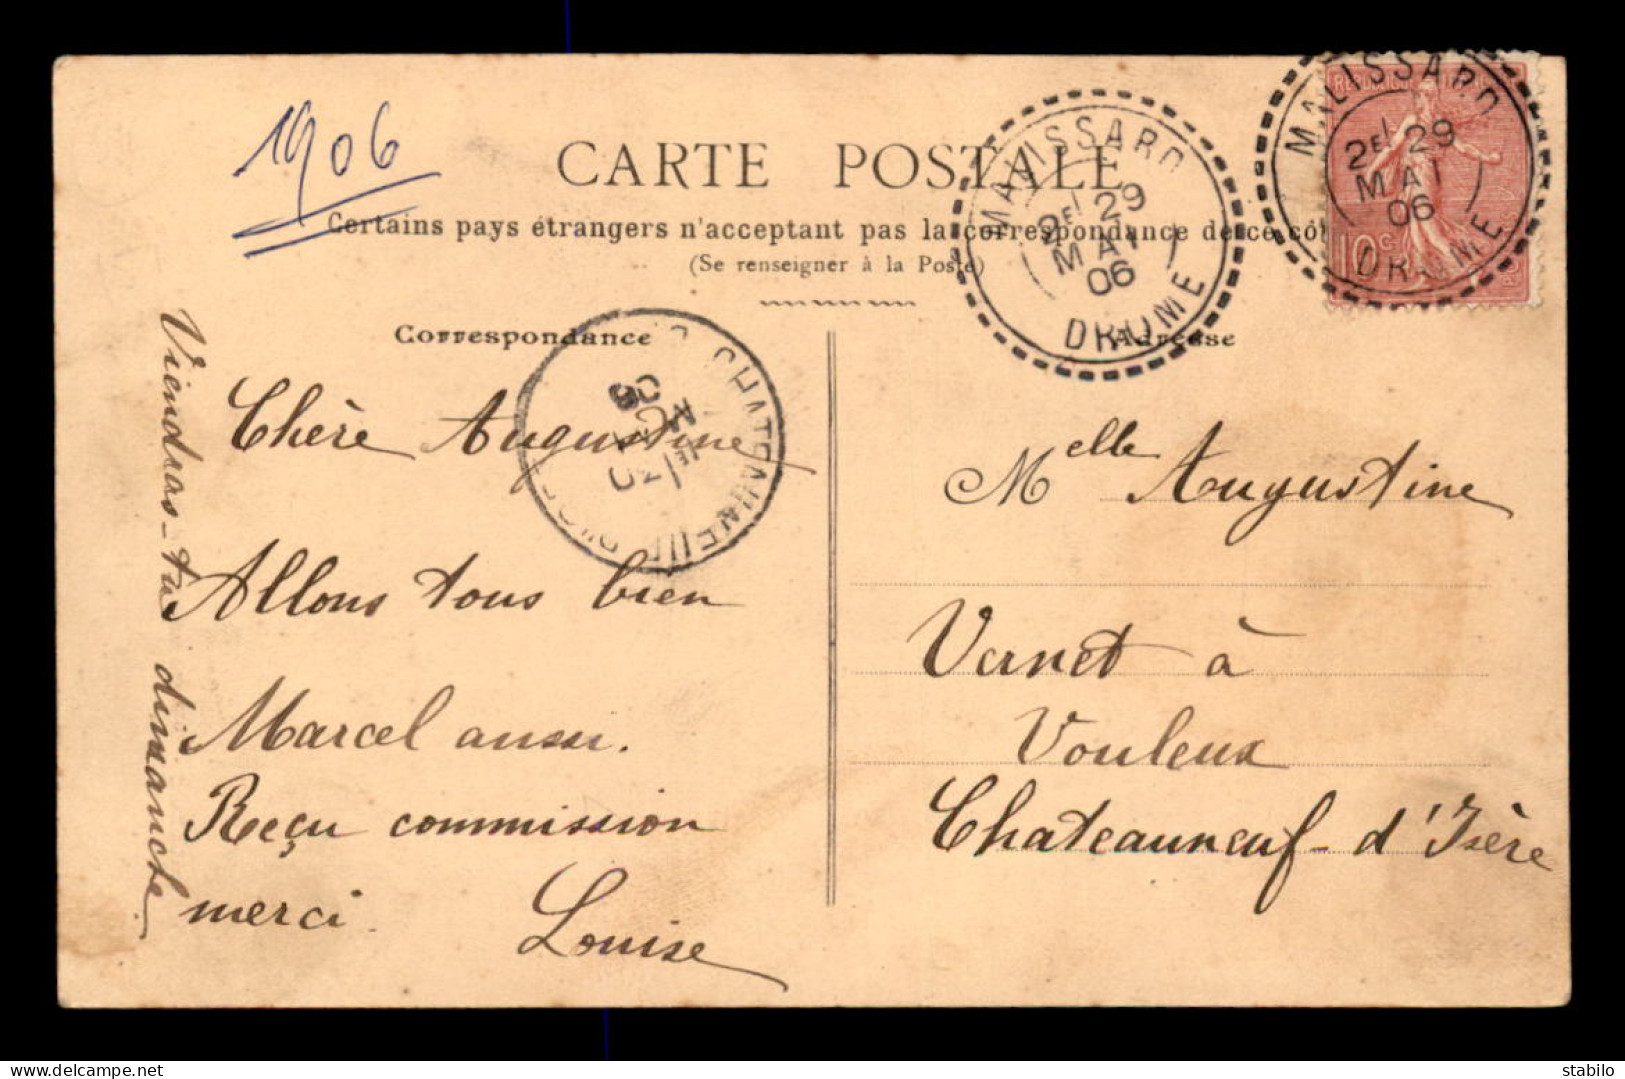 1906
CARTE POSTALE
Certains pays étrangers n'acceptent pas la correspondance de ce cô
(Se renseigner à la Poste)
Correspondance
Chère Augustine
Allons tous bien
Marcel aussi.
Reçu commission
merci
Louise
Viendras-tu dimanche
Adresse
Melle Augustine
Vernet à
Vouleux
Chateauneuf-d'Isère
MALISSARD
2E 29
MAI
06
DROME
MALISSARD
2E 29
MAI
06
DROME
10c
stabilo